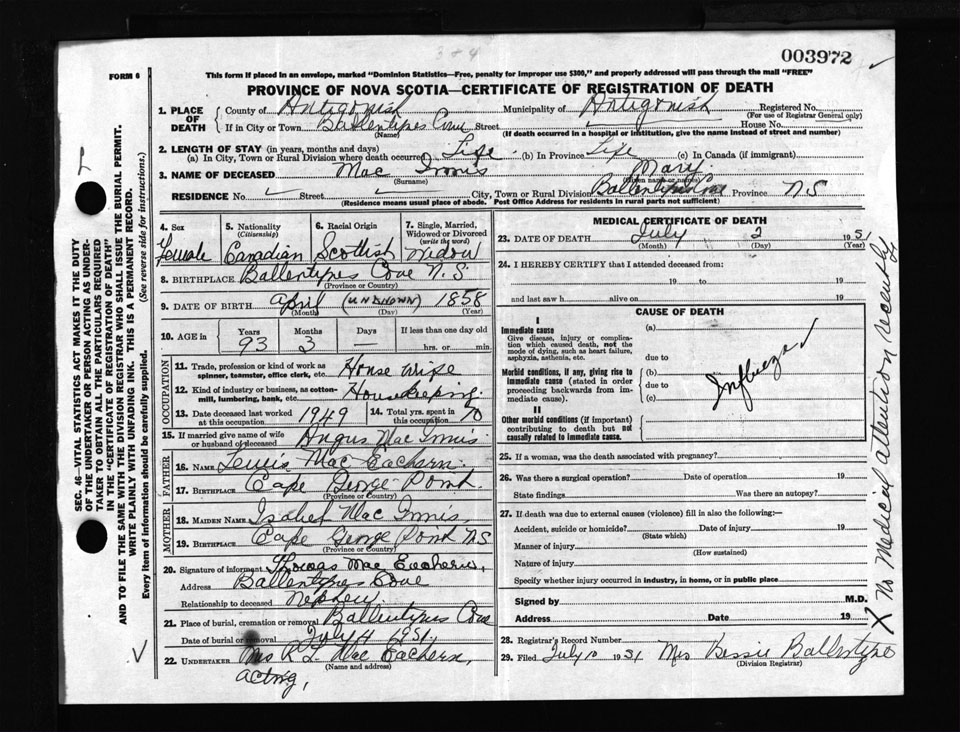 3 & 4
003972
FORM 6
This form if placed in an envelope, marked "Dominion Statistics—Free, penalty for improper use $300," and properly addressed will pass through the mail "FREE"
PROVINCE OF NOVA SCOTIA—CERTIFICATE OF REGISTRATION OF DEATH
1. PLACE OF DEATH County of Antigonish Municipality of Antigonish Registered No.
(For use of Registrar General only)
If in City or Town Ballentynes Cove Street House No.
(Name) (If death occurred in a hospital or institution, give the name instead of street and number)
2. LENGTH OF STAY (in years, months and days)
(a) In City, Town or Rural Division where death occurred Life (b) In Province Life (c) In Canada (if immigrant)
3. NAME OF DECEASED Mac Innis Mary
(Surname)
RESIDENCE No. Street City, Town or Rural Division Ballentynes Cove Province N S
(Residence means usual place of abode. Post Office Address for residents in rural parts not sufficient)
4. Sex 5. Nationality (Citizenship) 6. Racial Origin 7. Single, Married, Widowed or Divorced (write the word)
Female Canadian Scottish Widow
8. BIRTHPLACE Ballentynes Cove N. S
(Province or Country)
9. DATE OF BIRTH April (UNKNOWN) 1858
(Month) (Day) (Year)
10. AGE IN Years Months Days If less than one day old
93 3 — hrs. or min.
OCCUPATION
11. Trade, profession or kind of work as spinner, teamster, office clerk, etc. House wife
12. Kind of industry or business, as cotton-mill, lumbering, bank, etc. Housekeeping
13. Date deceased last worked at this occupation 1949 14. Total yrs. spent in this occupation 70
15. If married give name of wife or husband of deceased Angus Mac Innis
FATHER
16. NAME Lewis Mac Eachern
17. BIRTHPLACE Cape George Point
(Province or Country)
MOTHER
18. MAIDEN NAME Isabel Mac Innis
19. BIRTHPLACE Cape George Point N S
(Province or Country)
20. Signature of informant Thomas Mac Eachern
Address Ballentynes Cove
Relationship to deceased Nephew
21. Place of burial, cremation or removal Ballentynes Cove
Date of burial or removal July 4 1951
22. UNDERTAKER Mrs R L Mac Eachern
(Name and address)
acting,
MEDICAL CERTIFICATE OF DEATH
23. DATE OF DEATH July 2 1951
(Month) (Day) (Year)
24. I HEREBY CERTIFY that I attended deceased from:
19 to 19
and last saw h alive on 19
CAUSE OF DEATH
I
Immediate cause (a)
Give disease, injury or complication which caused death, not the mode of dying, such as heart failure, asphyxia, asthenia, etc.
due to
Morbid conditions, if any, giving rise to immediate cause (stated in order proceeding backwards from immediate cause).
(b)
due to
(c)
Influeza
II
Other morbid conditions (if important) contributing to death but not causally related to immediate cause.
25. If a woman, was the death associated with pregnancy?
26. Was there a surgical operation? Date of operation 19
State findings Was there an autopsy?
27. If death was due to external causes (violence) fill in also the following:—
Accident, suicide or homicide? Date of injury 19
(State which)
Manner of injury
(How sustained)
Nature of injury
Specify whether injury occurred in industry, in home, or in public place
Signed by M.D.
Address Date 19
28. Registrar's Record Number
29. Filed July 10 1951 Mrs Bessie Ballentyne
(Division Registrar)
X No Medical attention recently
SEC. 46—VITAL STATISTICS ACT MAKES IT THE DUTY
OF THE UNDERTAKER OR PERSON ACTING AS UNDER-
TAKER TO OBTAIN ALL THE PARTICULARS REQUIRED
IN THE "CERTIFICATE OF REGISTRATION OF DEATH"
AND TO FILE THE SAME WITH THE DIVISION REGISTRAR WHO SHALL ISSUE THE BURIAL PERMIT.
WRITE PLAINLY WITH UNFADING INK. THIS IS A PERMANENT RECORD.
Every item of information should be carefully supplied. (See reverse side for instructions.)